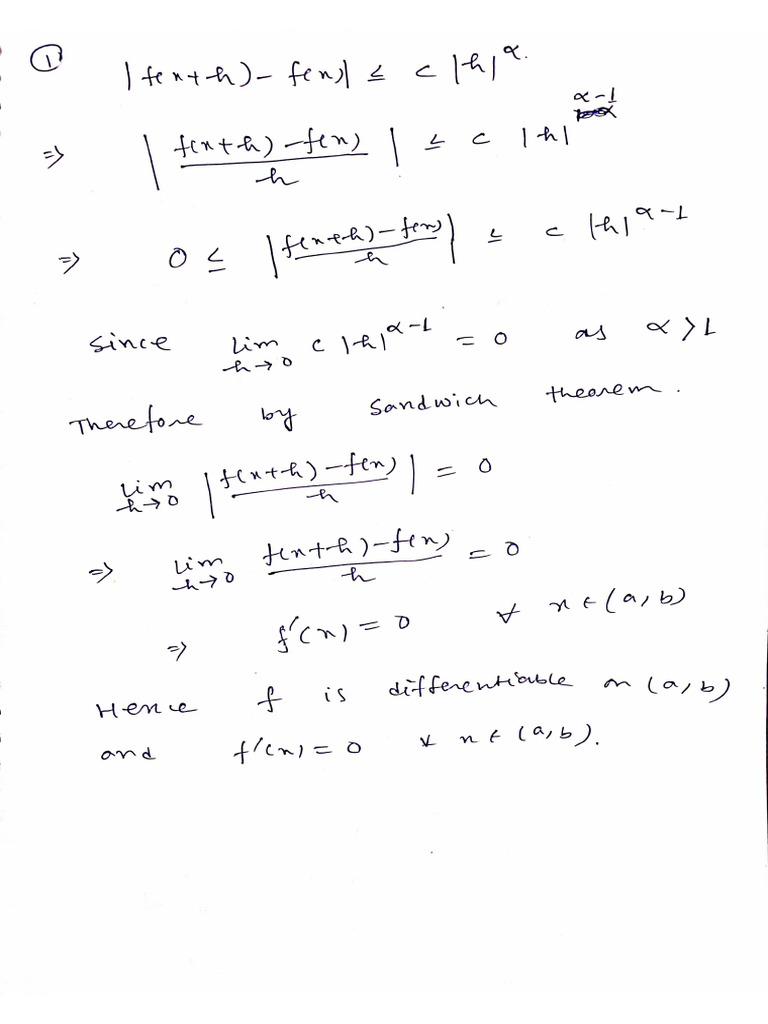 ① |f(x+h) - f(x)| ≤ c |h|^α.
⇒ |(f(x+h) - f(x))/h| ≤ c |h|^(α-1)
⇒ 0 ≤ |(f(x+h) - f(x))/h| ≤ c |h|^(α-1)
Since lim_(h→0) c |h|^(α-1) = 0 as α > 1
Therefore by Sandwich theorem.
lim_(h→0) |(f(x+h) - f(x))/h| = 0
⇒ lim_(h→0) (f(x+h) - f(x))/h = 0
⇒ f'(x) = 0 ∀ x ∈ (a, b)
Hence f is differentiable on (a, b)
and f'(x) = 0 ∀ x ∈ (a, b).